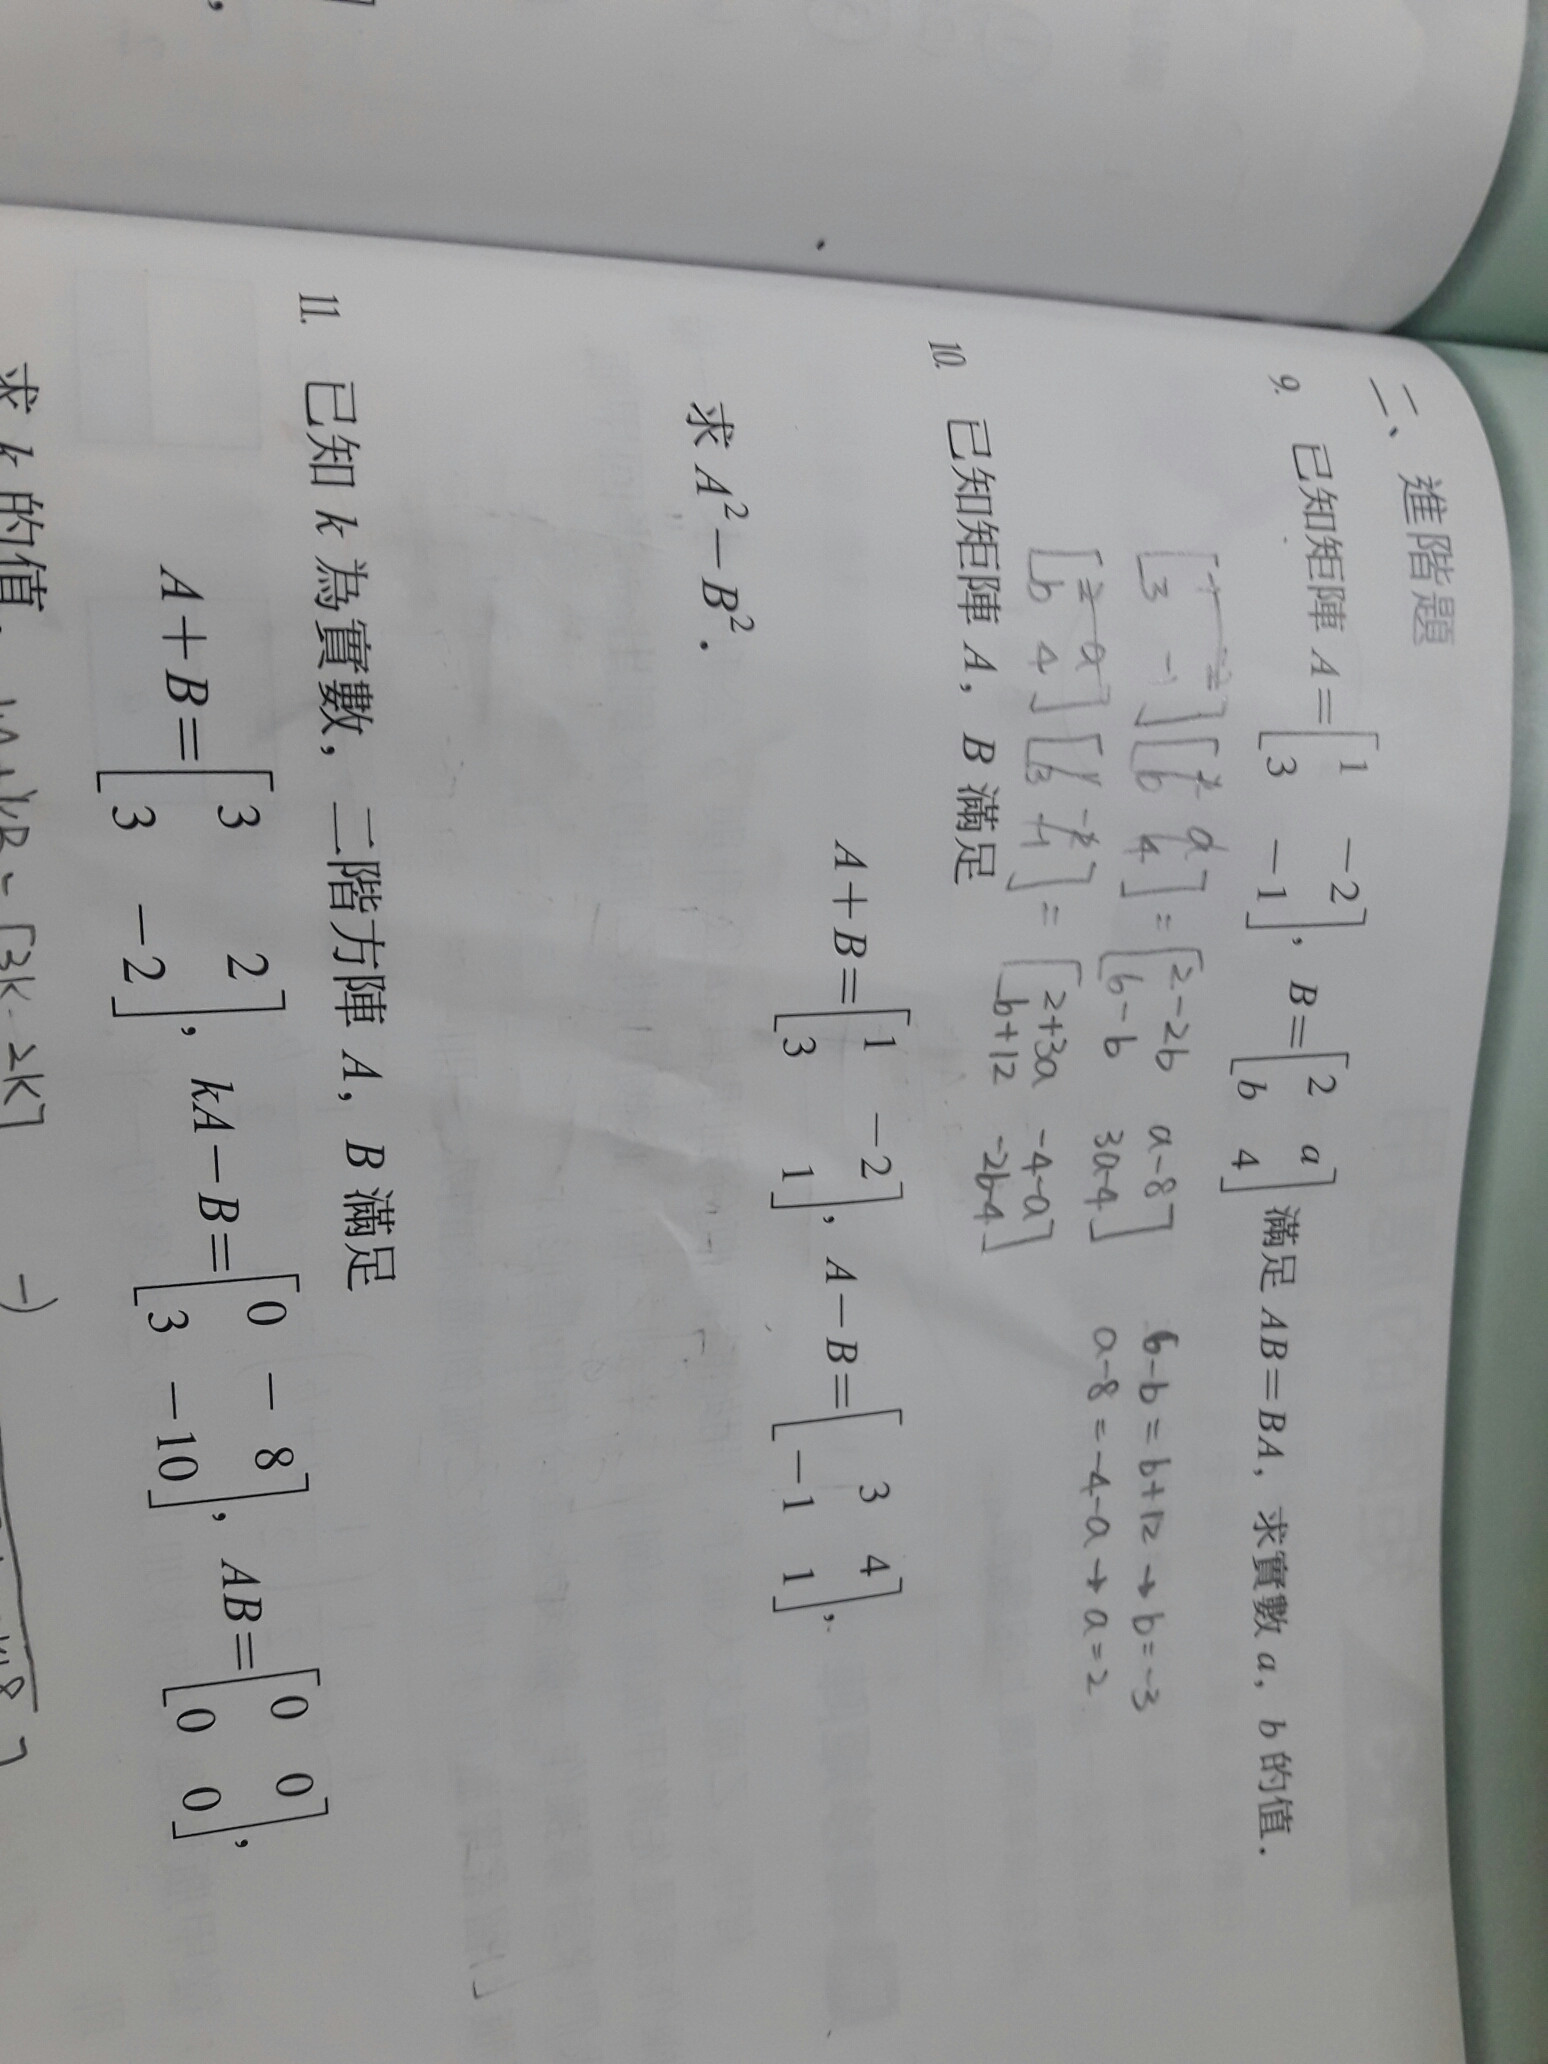 二、進階題
9. 已知矩陣 A=[1 -2; 3 -1], B=[2 a; b 4] 滿足 AB=BA, 求實數 a, b 的值.
[1 -2; 3 -1][2 a; b 4]=[2-2b a-8; 6-b 3a-4] 6-b=b+12→b=-3
[2 a; b 4][1 -2; 3 -1]=[2+3a -4-a; b+12 -2b-4] a-8=-4-a→a=2
10. 已知矩陣 A, B 滿足
A+B=[1 -2; 3 1], A-B=[3 4; -1 1],
求 A²-B².
11. 已知 k 為實數, 二階方陣 A, B 滿足
A+B=[3 2; 3 -2], kA-B=[0 -8; 3 -10], AB=[0 0; 0 0],
求 k 的值.